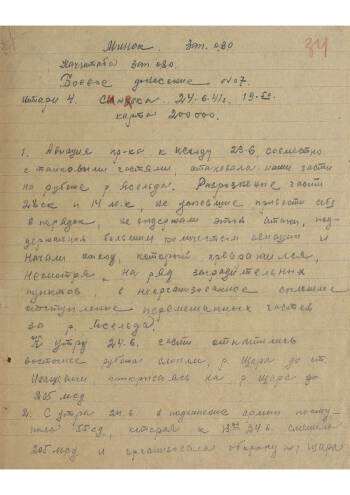 34
Минск. Зап. ОВО
Начштаба Зап. ОВО.
Боевое донесение №07.
Штарм 4. Синявка. 24.6.41г. 19.50
карта 200000.
1. Авиация пр-ка к исходу 23.6 совместно
с танковыми частями, атаковала наши части
на рубеже р. Ясельда. Разрозненные части
28ск и 14 м.к. не успевшие привести себя
в порядок, не выдержали этой атаки, под-
держанной большим количеством авиации и
начали отход, который превратился,
несмотря на ряд заградительных
пунктов, в неорганизованное сплошное
отступление перемешанных частей
за р. Ясельда.
К утру 24.6. части откатились
восточнее рубежа р. Щара до
на р. Щара до
205 мсд
2. С утра 24.6. в подчинение армии посту-
пила 55сд, которая к 24.6. сменила
205 мсд и организовала оборону по р. Щара